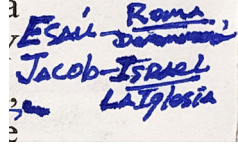 Esaú - Roma,
Jacob - Israel
La Iglesia